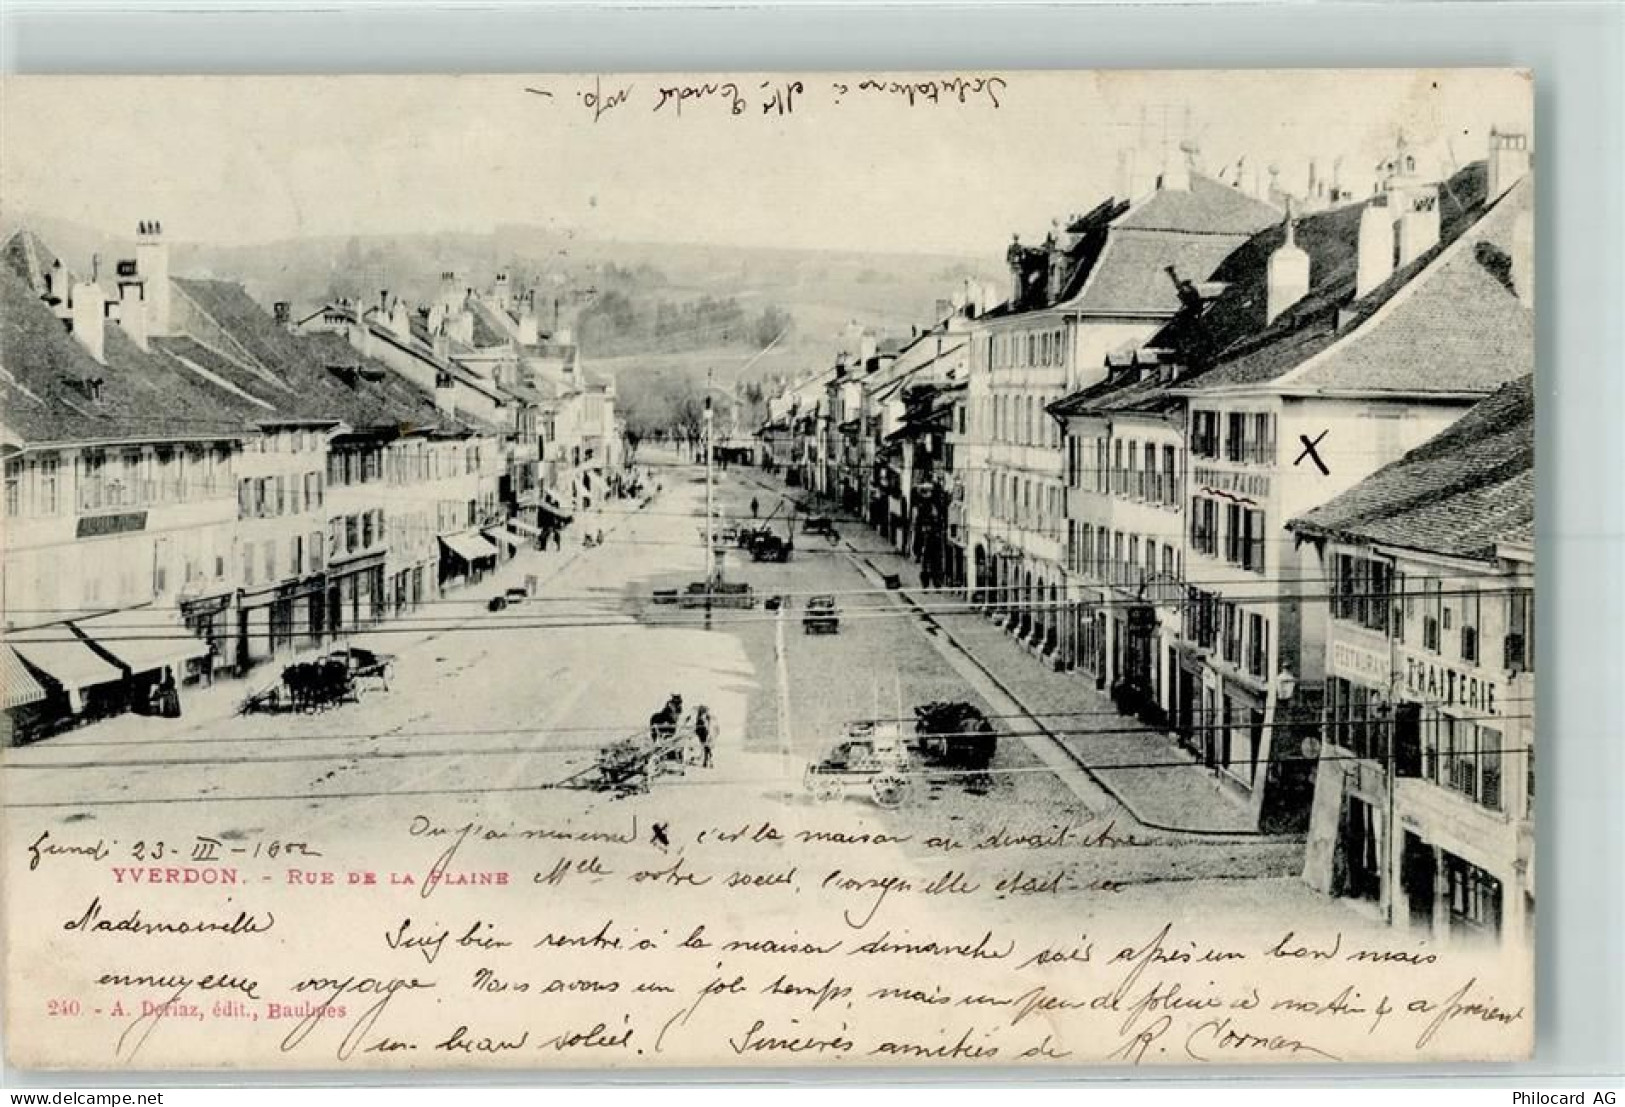 Salutations à
RESTAURANT
TRAITERIE.
Lundi 23 - III - 1902
Où j'ai mis une X, c'est la maison où devait être
YVERDON. - RUE DE LA PLAINE
Mlle votre soeur, lorsqu'elle était ici
Mademoiselle
Suis bien rentré à la maison dimanche soir après un bon mais
ennuyeux voyage. Nous avons un joli temps, mais un peu de pluie ce matin & a présent
240. - A. Deriaz, édit., Baulmes
un beau soleil. Sincères amitiés de R.
Philocard AG